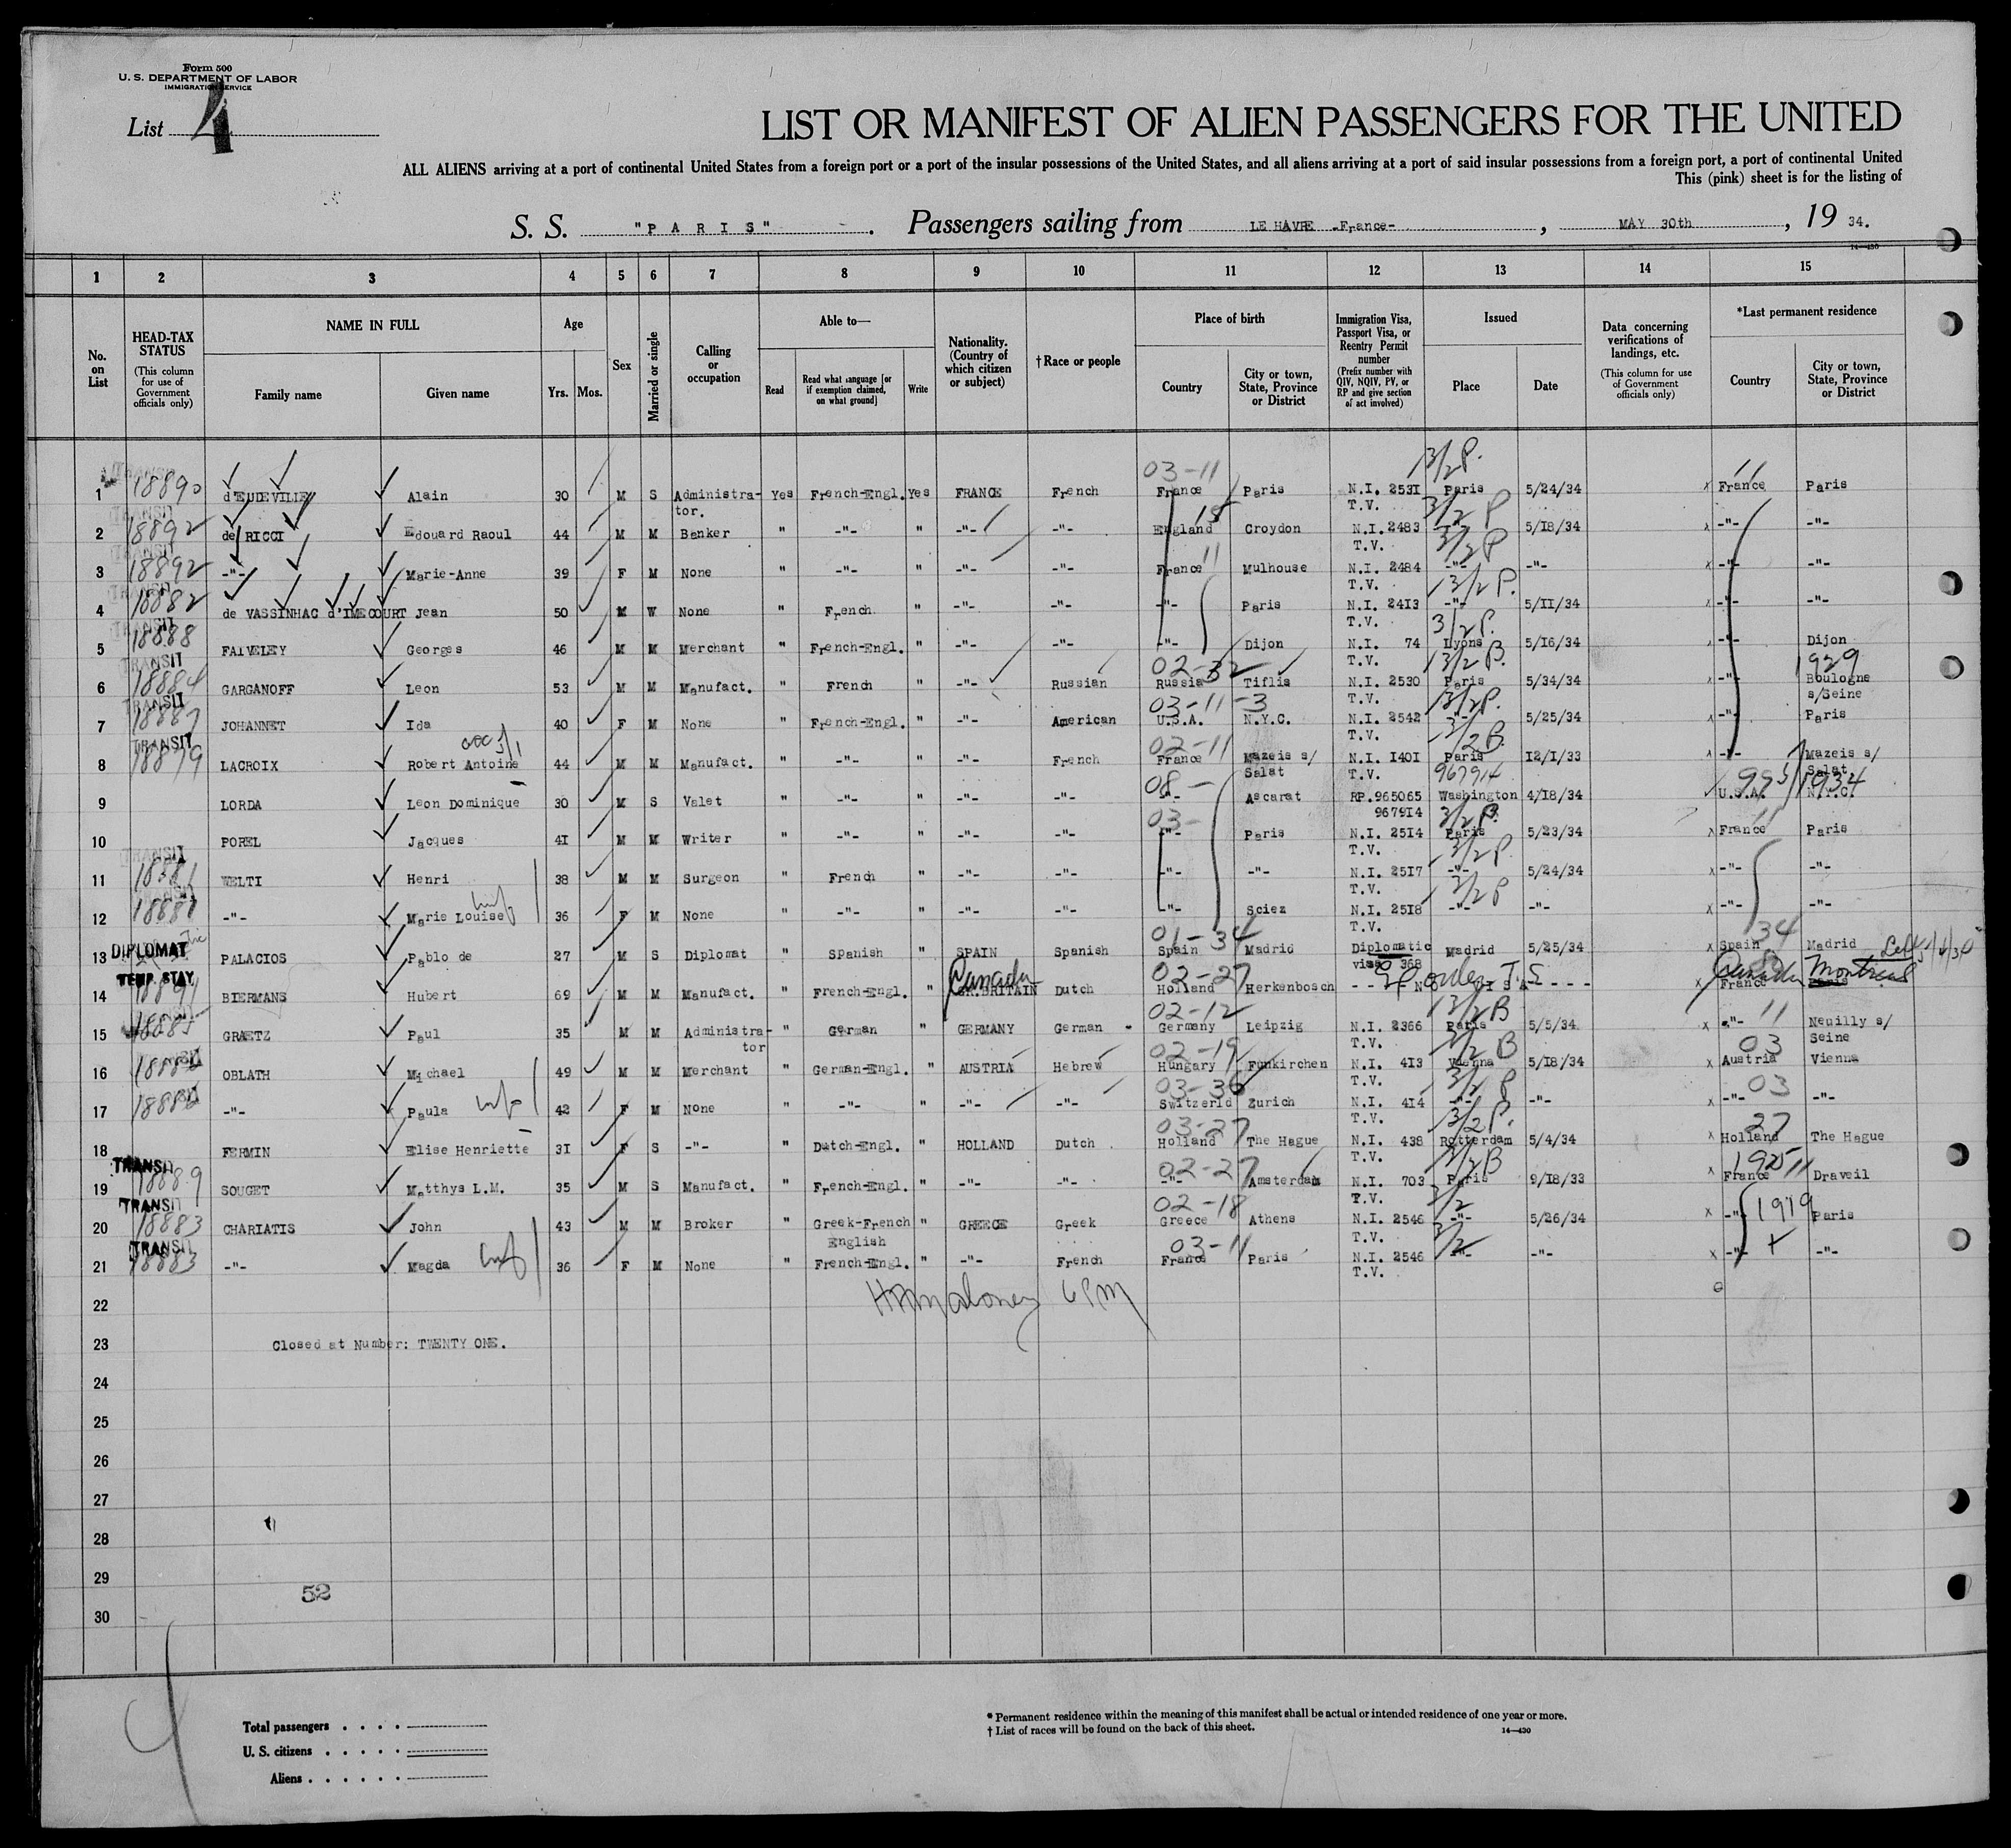 Form 500
U. S. DEPARTMENT OF LABOR
IMMIGRATION SERVICE
List 4
LIST OR MANIFEST OF ALIEN PASSENGERS FOR THE UNITED
ALL ALIENS arriving at a port of continental United States from a foreign port or a port of the insular possessions of the United States, and all aliens arriving at a port of said insular possessions from a foreign port, a port of continental United
This (pink) sheet is for the listing of
S. S. "PARIS". Passengers sailing from LE HAVRE -France-, MAY 30th, 19 34.
14—430
1 2 3 4 5 6 7 8 9 10 11 12 13 14 15
No. on List
HEAD-TAX STATUS (This column for use of Government officials only)
NAME IN FULL Family name Given name
Age Yrs. Mos.
Sex
Married or single
Calling or occupation
Able to— Read Read what language [or if exemption claimed, on what ground] Write
Nationality. (Country of which citizen or subject)
†Race or people
Place of birth Country City or town, State, Province or District
Immigration Visa, Passport Visa, or Reentry Permit number (Prefix number with QIV, NQIV, PV, or RP and give section of act involved)
Issued Place Date
Data concerning verifications of landings, etc. (This column for use of Government officials only)
*Last permanent residence Country City or town, State, Province or District
03-11 3/2P. 11
1 TRANSIT 18890 d'EUDEVILLE Alain 30 M S Administra- Yes French-Engl. Yes FRANCE French France Paris N.I. 2531 Paris 5/24/34 x France Paris
tor. T.V. 3/2 P
2 TRANSIT 18892 de RICCI Edouard Raoul 44 M M Banker " -"- " -"- -"- England Croydon N.I. 2483 -"- 5/18/34 x -"- -"-
T.V. 3/2 P
3 TRANSIT 18892 -"- Marie-Anne 39 F M None " -"- " -"- -"- France 11 Mulhouse N.I. 2484 -"- -"- x -"- -"-
T.V. 3/2 P.
4 TRANSIT 18882 de VASSINHAC d'IMECOURT Jean 50 M W None " French " -"- -"- -"- Paris N.I. 2413 -"- 5/11/34 x -"- -"-
T.V. 3/2 P.
5 TRANSIT 18888 FAIVELEY Georges 46 M M Merchant " French-Engl. " -"- -"- -"- Dijon N.I. 74 Lyons 5/16/34 x -"- Dijon
02-32 T.V. 3/2 B. 1929
6 TRANSIT 18884 GARGANOFF Leon 53 M M Manufact. " French " -"- Russian Russia Tiflis N.I. 2530 Paris 5/34/34 x -"- Boulogne
03-11-3 T.V. 3/2P. s/Seine
7 TRANSIT 18887 JOHANNET Ida 40 F M None " French-Engl. " -"- American U.S.A. N.Y.C. N.I. 2542 -"- 5/25/34 x -"- Paris
02-11 T.V. 3/2 B.
8 TRANSIT 18879 LACROIX Robert Antoine 44 M M Manufact. " -"- " -"- French France Mazeis s/ N.I. 1401 Paris 12/1/33 x -"- Mazeis s/
08- Salat T.V. 967914 Salat
9 LORDA Leon Dominique 30 M S Valet " -"- " -"- -"- -"- Ascarat RP.965065 Washington 4/18/34 U.S.A. N.Y.C. 1934
03- 967914 3/2 P.
10 POREL Jacques 41 M M Writer " -"- " -"- -"- -"- Paris N.I. 2514 Paris 5/23/34 x France 11 Paris
T.V. 3/2 P
11 TRANSIT 18881 WELTI Henri 38 M M Surgeon " French " -"- -"- -"- -"- N.I. 2517 -"- 5/24/34 x -"- -"-
T.V. 3/2 P
12 TRANSIT 18881 -"- Marie Louise 36 F M None " -"- " -"- -"- -"- Sciez N.I. 2518 -"- -"- x -"- -"-
01-34 T.V. 34
13 DIPLOMAT PALACIOS Pablo de 27 M S Diplomat " Spanish " SPAIN Spanish Spain Madrid Diplomatic Madrid 5/25/34 x Spain Madrid
TEMP. STAY Canada 02-27 visa 368 Canada Montreal
14 18891 BIERMANS Hubert 69 M M Manufact. " French-Engl. " GR.BRITAIN Dutch Holland Herkenbosch x France Paris
02-12 3/2 B
15 18885 GRAETZ Paul 35 M M Administra- " German " GERMANY German Germany Leipzig N.I. 2366 Paris 5/5/34 x -"- 11 Neuilly s/
tor 02-19 T.V. 3/2 B 03 Seine
16 18886 OBLATH Michael 49 M M Merchant " German-Engl. " AUSTRIA Hebrew Hungary Funkirchen N.I. 413 Vienna 5/18/34 x Austria Vienna
03-36 T.V. 3/2 P 03
17 18886 -"- Paula 42 F M None " -"- " -"- -"- Switzerld Zurich N.I. 414 -"- -"- x -"- -"-
03-27 T.V. 3/2 P. 27
18 FERMIN Elise Henriette 31 F S -"- " Dutch-Engl. " HOLLAND Dutch Holland The Hague N.I. 438 Rotterdam 5/4/34 x Holland The Hague
02-27 T.V. 3/2 B 1925 11
19 TRANSIT 18889 SOUGET Matthys L.M. 35 M S Manufact. " French-Engl. " -"- -"- -"- Amsterdam N.I. 703 Paris 9/18/33 x France Draveil
02-18 T.V. 3/2
20 TRANSIT 18883 CHARIATIS John 43 M M Broker " Greek-French " GREECE Greek Greece Athens N.I. 2546 -"- 5/26/34 x -"- 1919 Paris
English 03-11 T.V. 3/2
21 TRANSIT 18883 -"- Magda 36 F M None " French-Engl. " -"- French France Paris N.I. 2546 -"- -"- x -"- -"-
T.V.
22 6 PM
23 Closed at Number: TWENTY ONE.
24
25
26
27
28
29
52
30
Total passengers
U. S. citizens
Aliens
* Permanent residence within the meaning of this manifest shall be actual or intended residence of one year or more.
† List of races will be found on the back of this sheet. 14—430